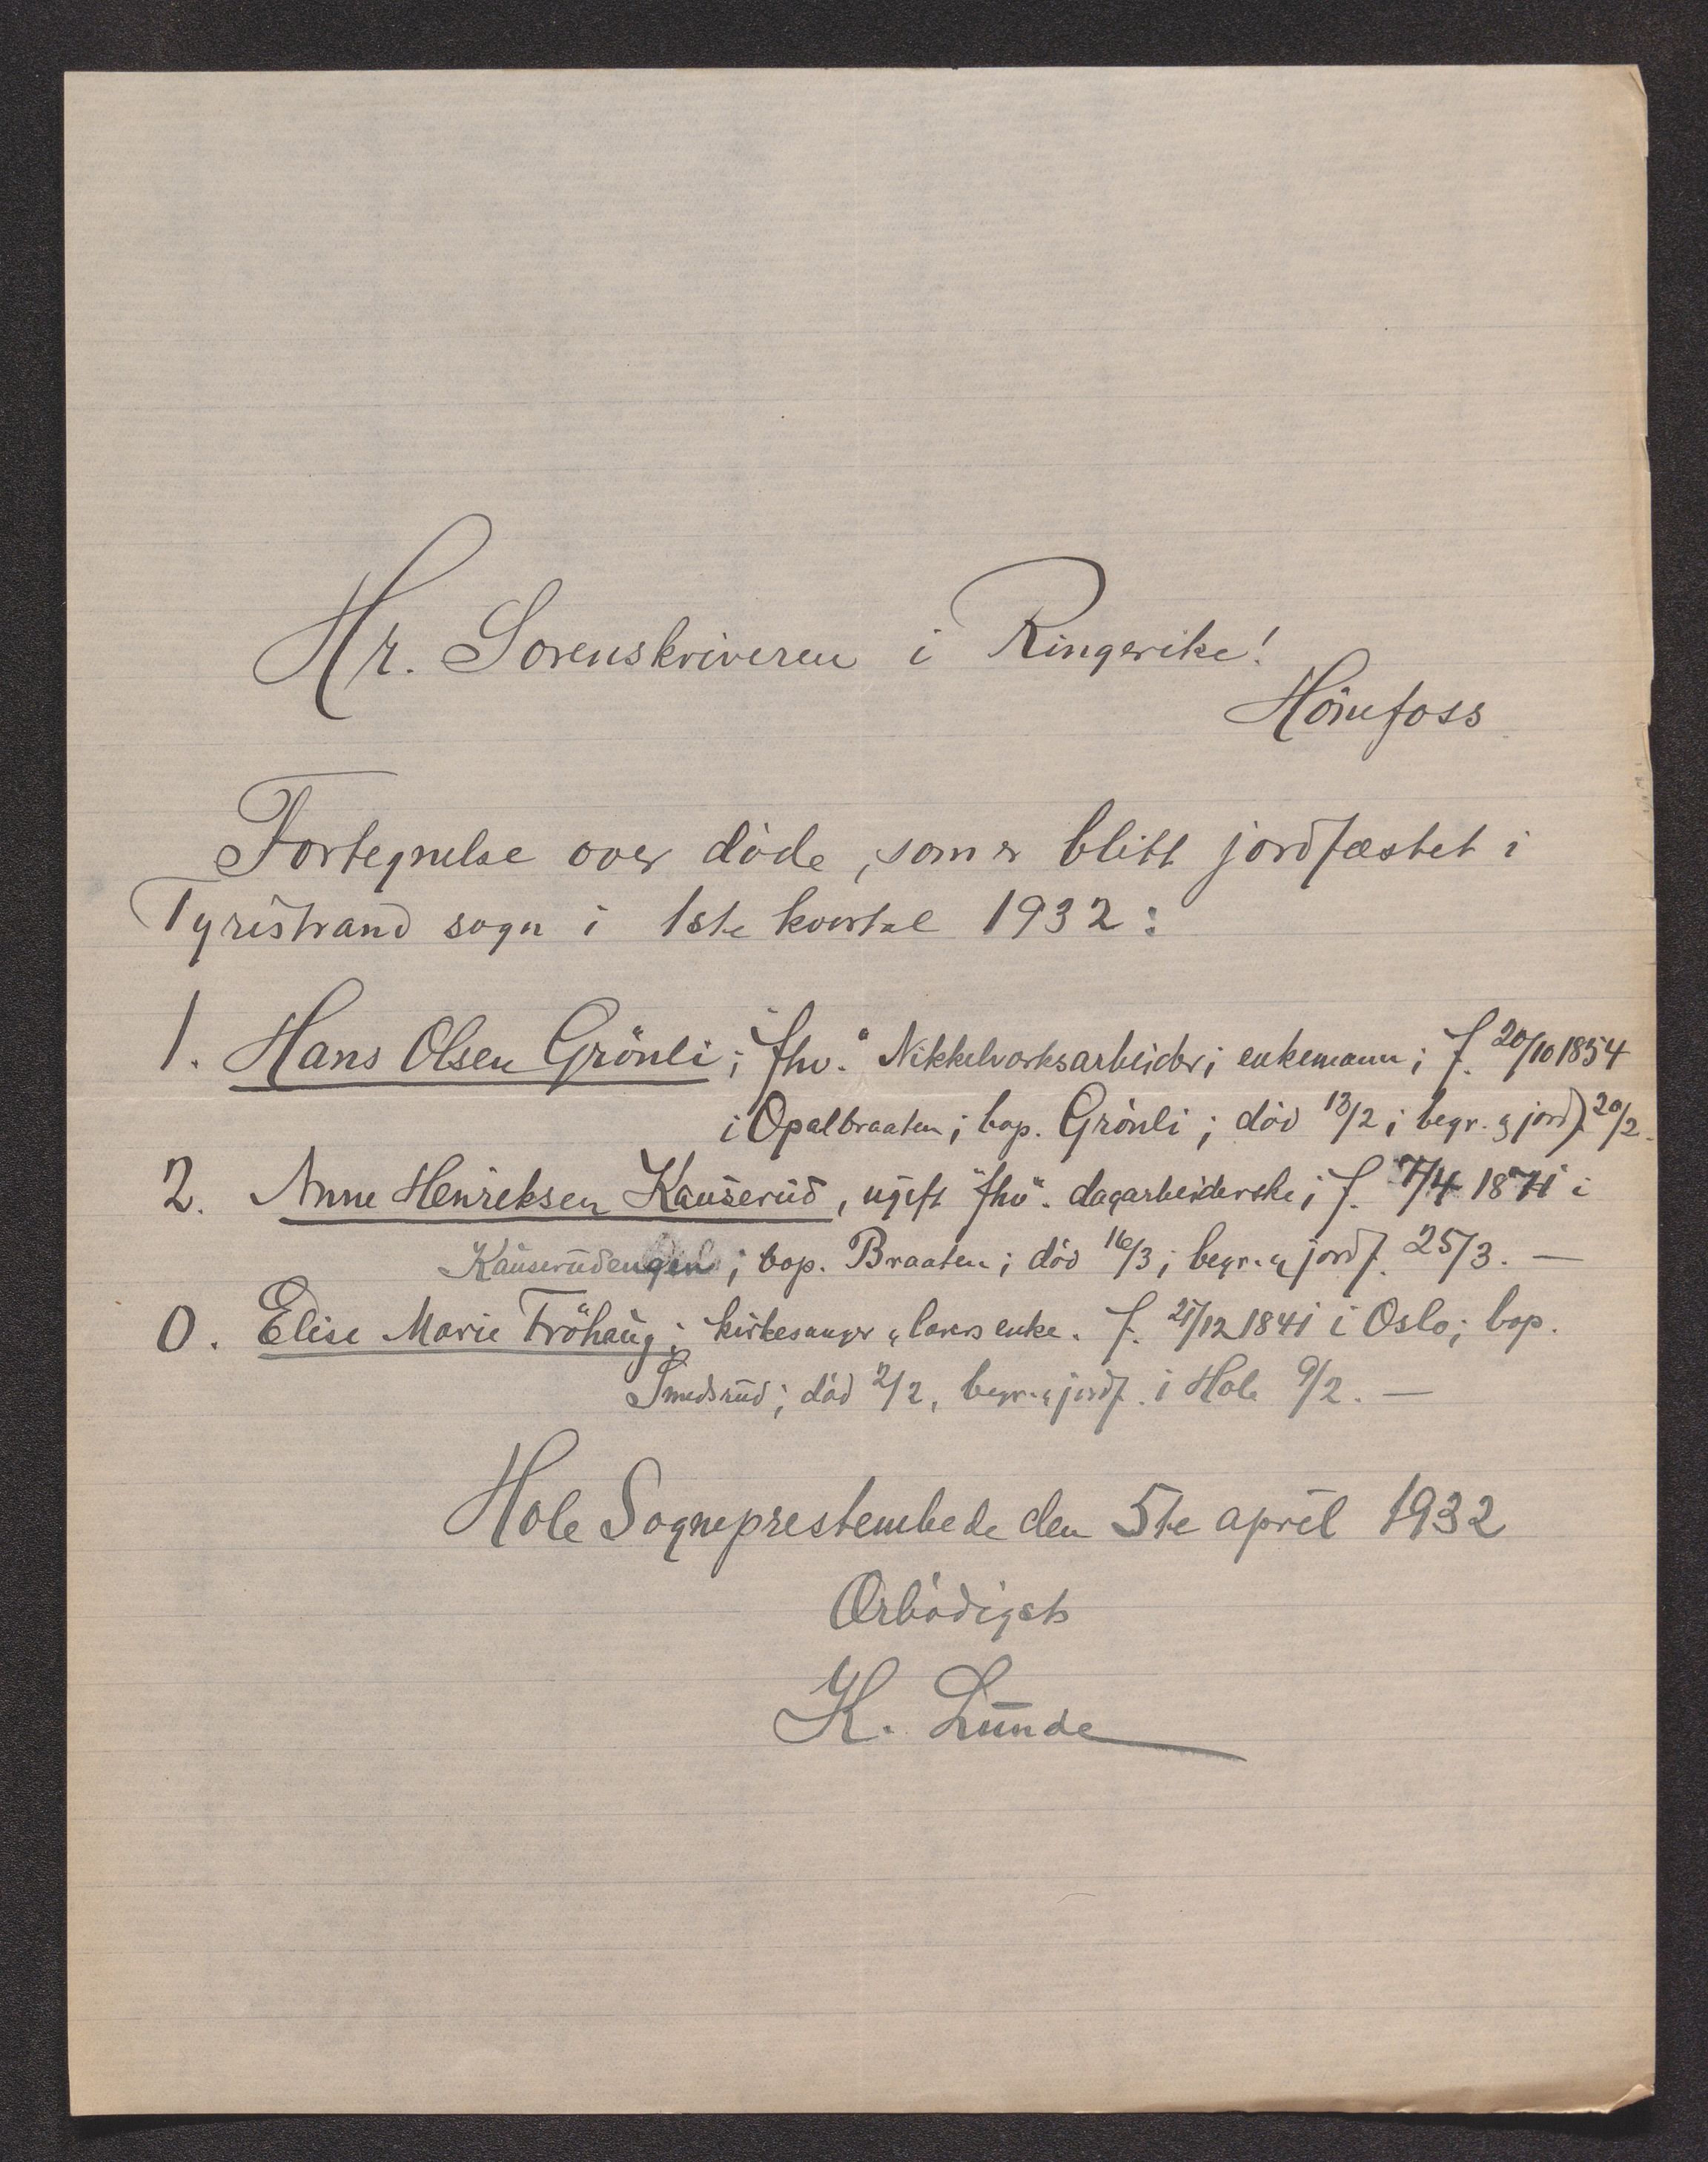 Hr. Sorenskriveren i Ringerike!
Hönefoss
Fortegnelse over døde, som er blitt jordfæstet i
Tyristrand sogn i 1ste kvartal 1932:
1. Hans Olsen Grönli; "fhv." Nikkelverksarbeider; enkemann; f. 20/10 1854
i Opalbraaten; bop. Grönli; död 13/2; begr. & jordf. 20/2.
2. Anne Henriksen Kauserud, ugift "fhv". dagarbeiderske; f. 7/4 1871 i
Kauserudengen; bop. Braaten; död 16/3; begr. & jordf. 25/3. —
0. Elise Marie Fröhaug; kirkesanger & lærers enke. f. 21/12 1841 i Oslo; bop.
Smedsrud; död 2/2, begr. & jordf. i Hole 9/2. —
Hole Sogneprestembede den 5te april 1932
Ærbödigst
K. Lunde